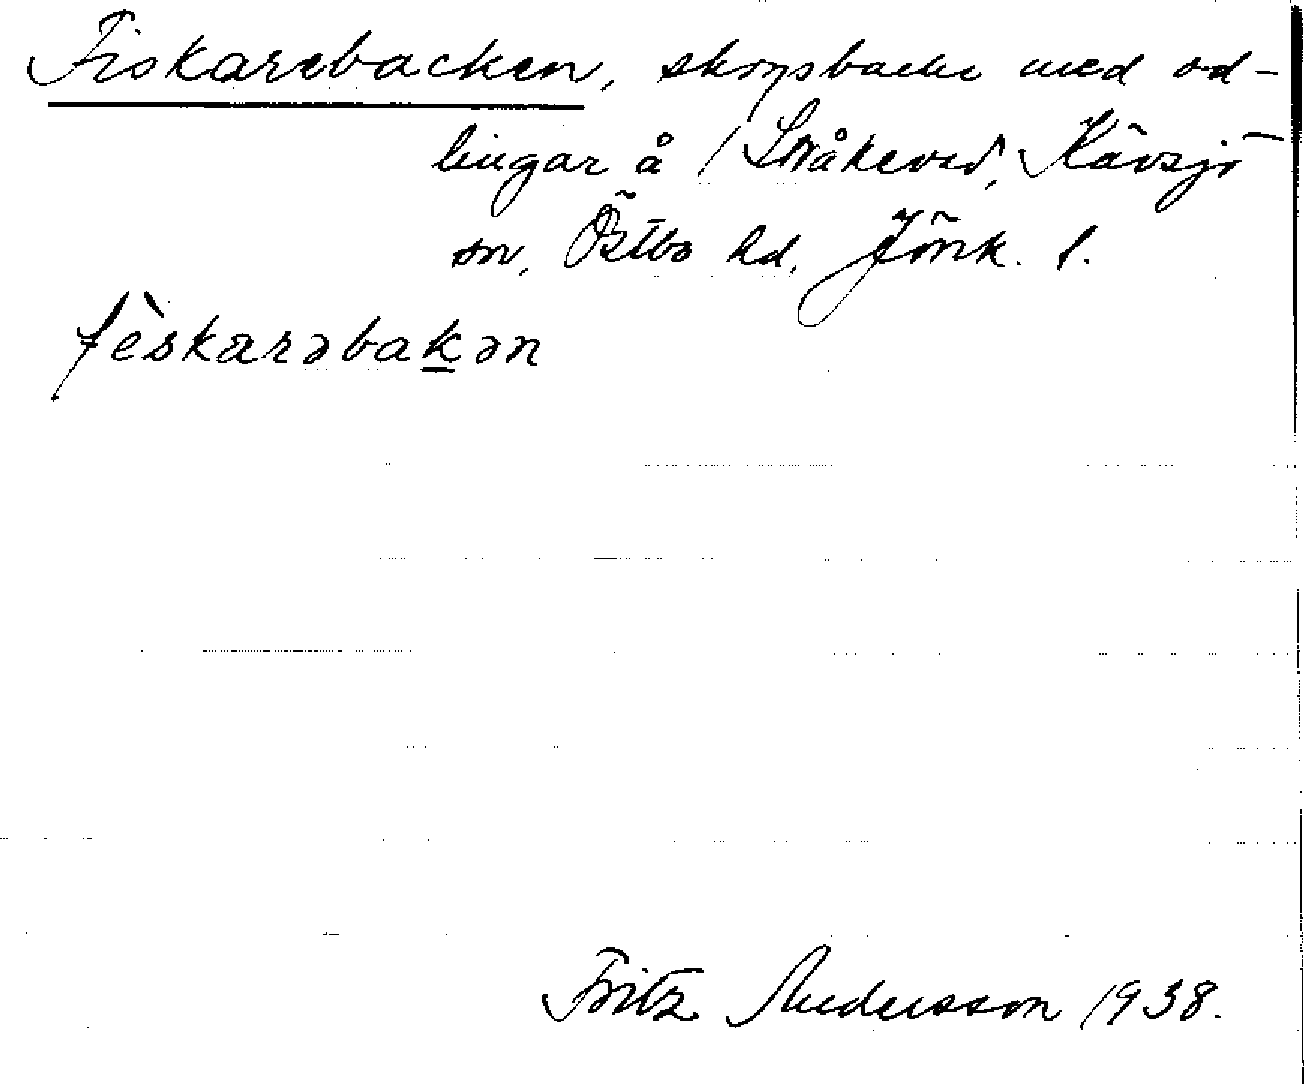 Fiskarebacken, skogsbacke med od-
lingar å / Stråkeved, Kävsjö
sn, Östbo hd, Jönk. l.
fèskarəbakən
Fritz Andersson 1938.